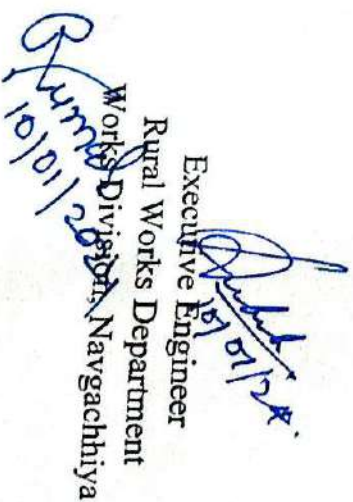 Executive Engineer
Rural Works Department
Works Division, Navgachhiya
10/01/24